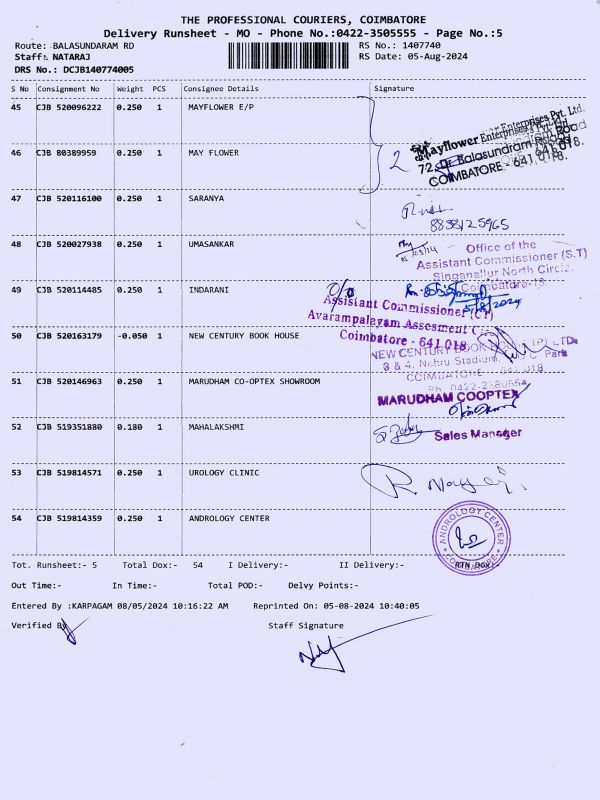 THE PROFESSIONAL COURIERS, COIMBATORE
Delivery Runsheet - MO - Phone No.:0422-3505555 - Page No.:5
Route: BALASUNDARAM RD
RS No.: 1407740
Staff: NATARAJ
RS Date: 05-Aug-2024
DRS No.: DCJB140774005
S No Consignment No Weight PCS Consignee Details Signature
45 CJB 520096222 0.250 1 MAYFLOWER E/P
Mayflower Enterprises Pvt. Ltd.
72, Balasundram Road
COIMBATORE - 641 018.
46 CJB 80389959 0.250 1 MAY FLOWER 2
47 CJB 520116100 0.250 1 SARANYA
8838125965
48 CJB 520027938 0.250 1 UMASANKAR
Office of the
Assistant Commissioner (S.T)
Singanallur North Circle,
Coimbatore-18
49 CJB 520114485 0.250 1 INDARANI
5/8/2024
Assistant Commissioner (CT)
Avarampalayam Assesment
Coimbatore - 641 018
50 CJB 520163179 -0.050 1 NEW CENTURY BOOK HOUSE
NEW CENTURY BOOK HOUSE (P) LTD.
3 & 4, Nehru Stadium,
COIMBATORE - 641 018
51 CJB 520146963 0.250 1 MARUDHAM CO-OPTEX SHOWROOM
MARUDHAM COOPTEX
52 CJB 519351880 0.180 1 MAHALAKSHMI
Sales Manager
53 CJB 519814571 0.250 1 UROLOGY CLINIC
54 CJB 519814359 0.250 1 ANDROLOGY CENTER
ANDROLOGY CENTER
COIMBATORE
Tot. Runsheet:- 5 Total Dox:- 54 I Delivery:- II Delivery:- RTN Dox:-
Out Time:- In Time:- Total POD:- Delvy Points:-
Entered By :KARPAGAM 08/05/2024 10:16:22 AM Reprinted On: 05-08-2024 10:40:05
Verified By
Staff Signature